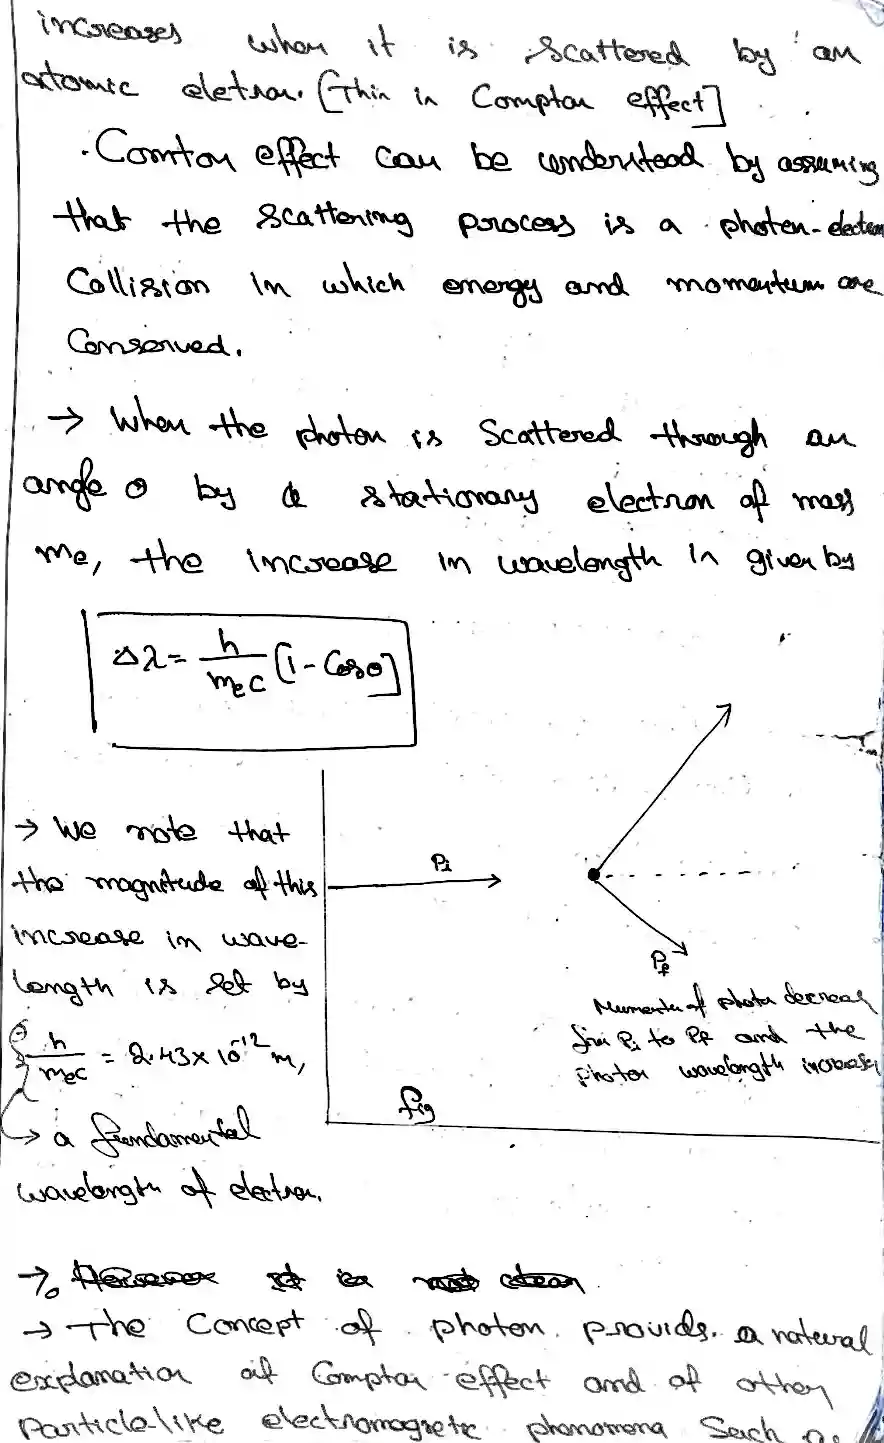 increases when it is scattered by an
atomic eletron. [This is Compton effect]
. Comton effect can be understood by assuming
that the scattering process is a photon-electron
Collision in which energy and momentum are
Conserved.
→ When the photon is Scattered through an
angle θ by a stationary electron of mass
me, the increase in wavelength is given by
Δλ = h/mec [1 - Cosθ]
→ We note that
the magnitude of this
increase in wave-
length is set by
h/mec = 2.43 x 10^-12 m,
→ a fundamental
wavelength of electron.
Pi
Pf
Momenta of photon decreases
from Pi to Pf and the
photon wavelength increases
fig
→ The Concept of photon provids a natural
explanation of Compton effect and of other
Particle-like electromagnetic phenomena Such as